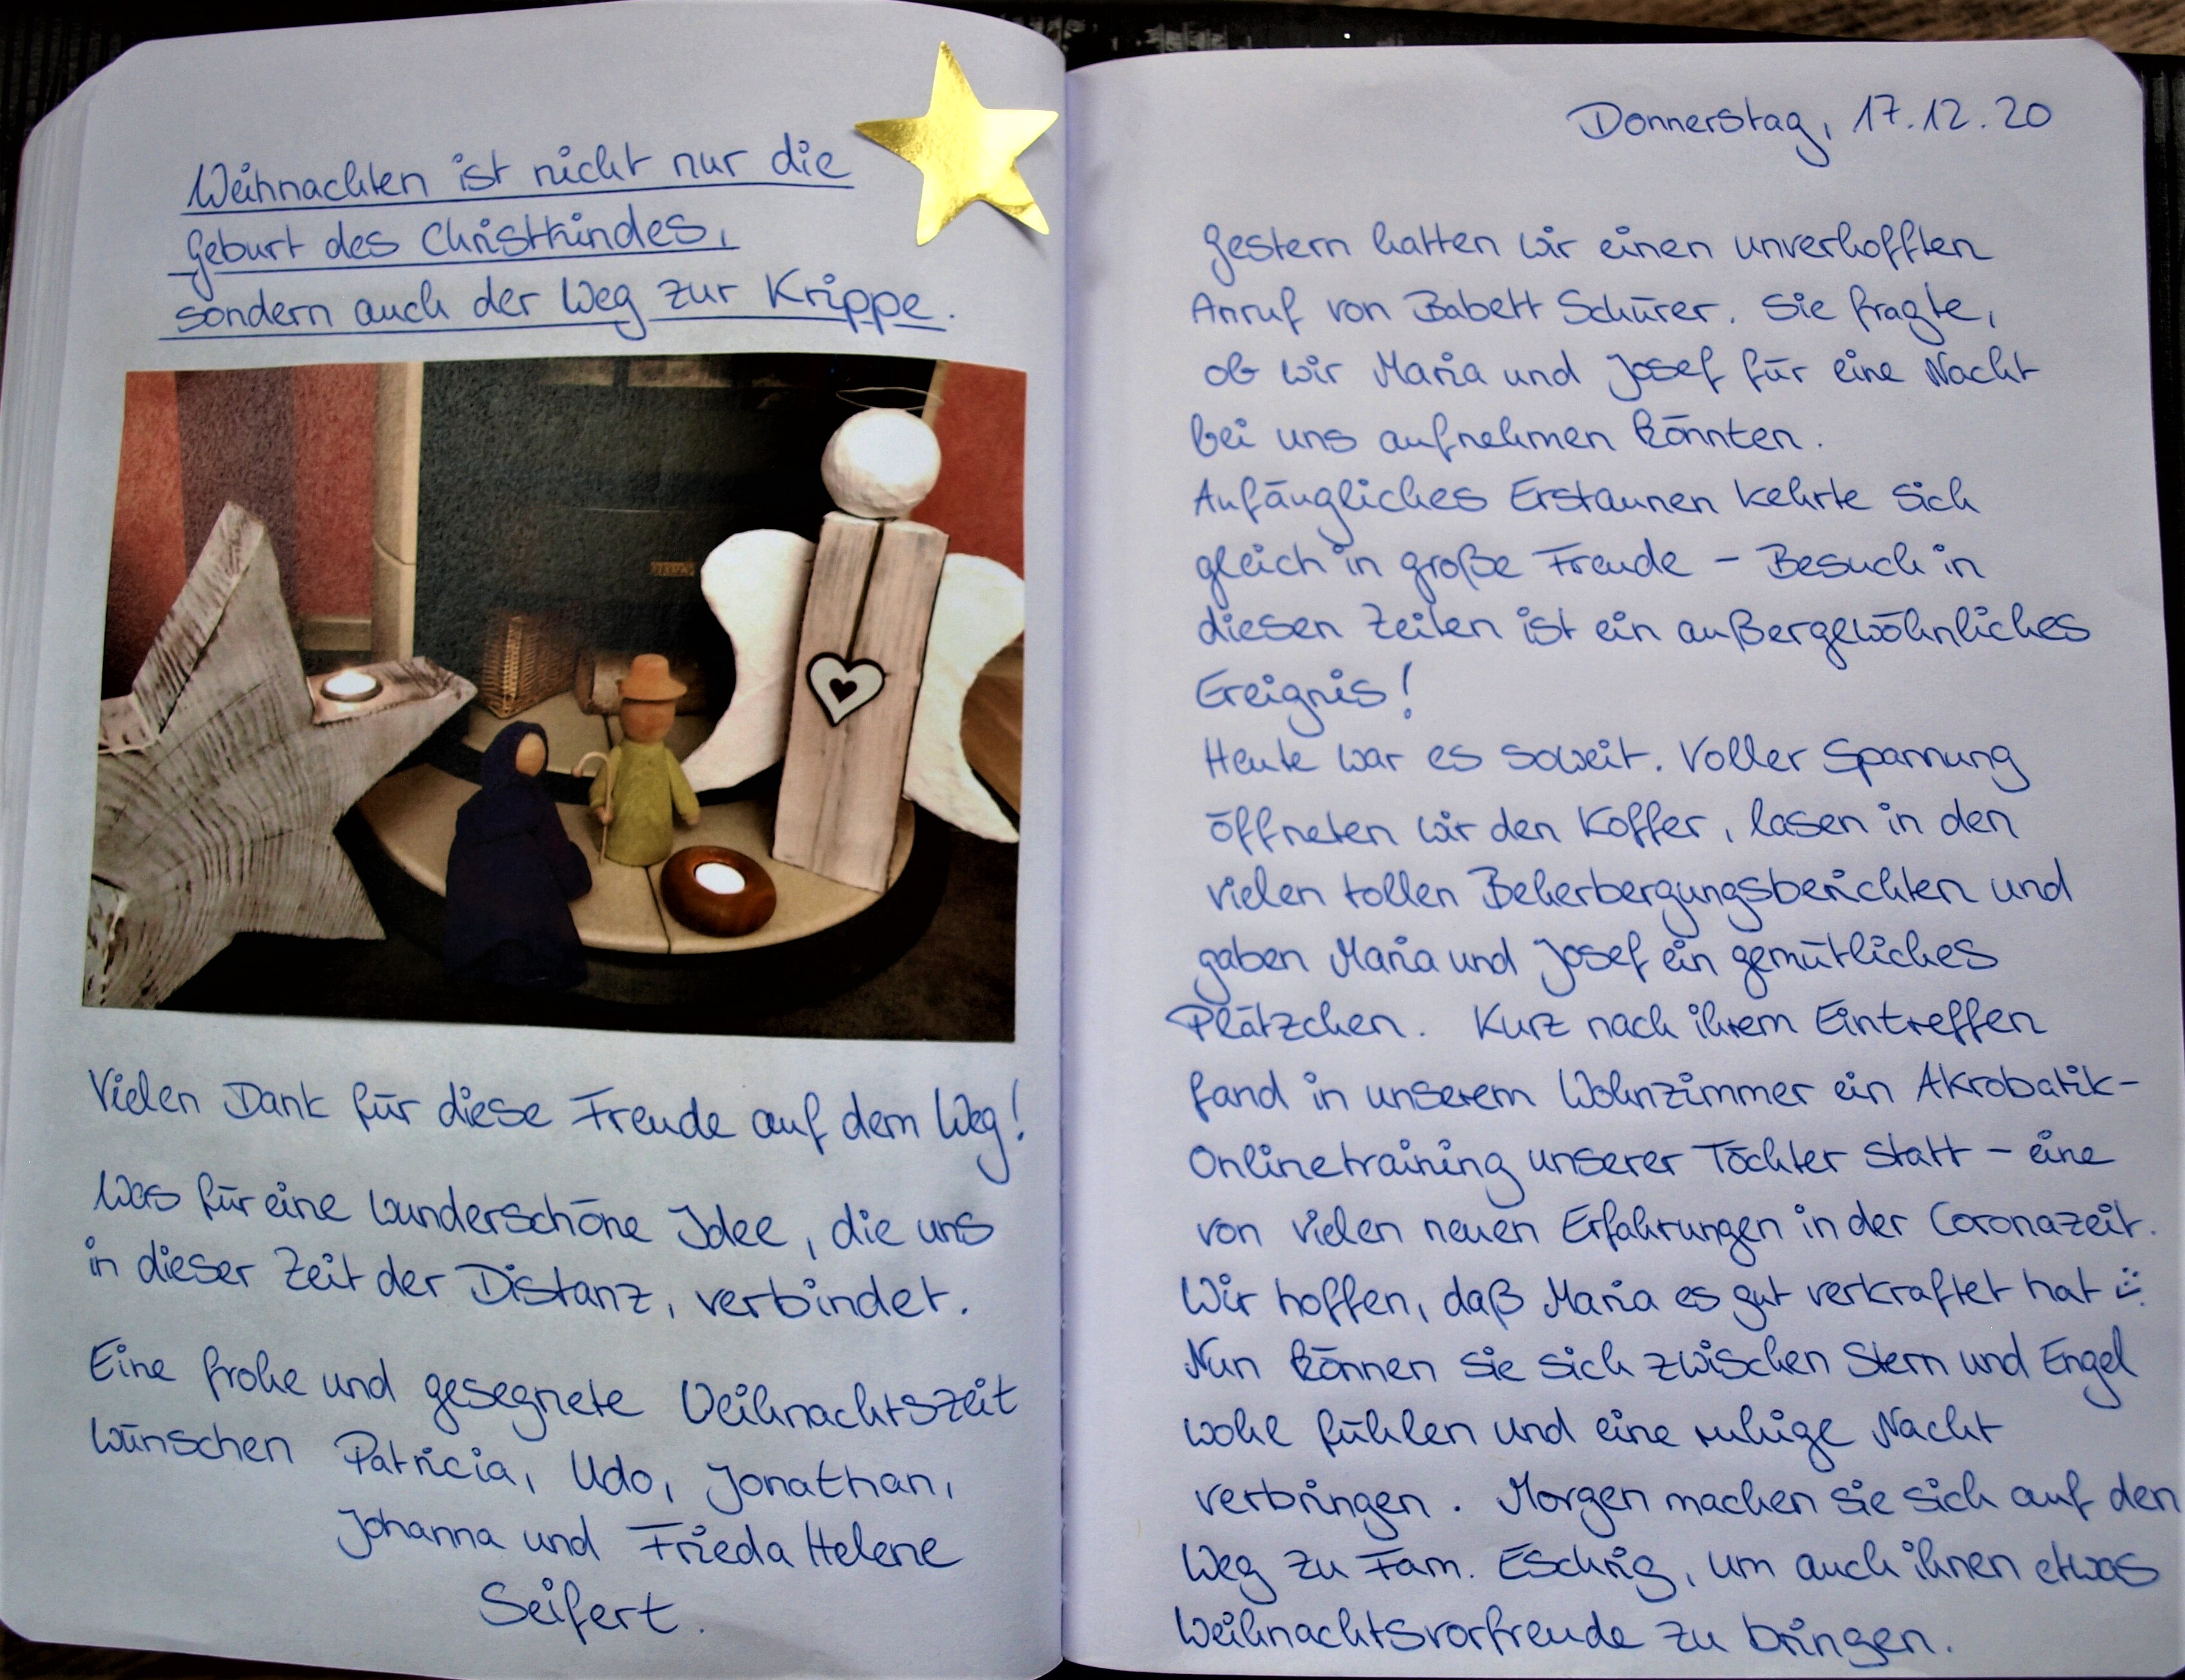 Weihnachten ist nicht nur die
Geburt des Christkindes,
sondern auch der Weg zur Krippe.
Vielen Dank für diese Freude auf dem Weg!
Was für eine wunderschöne Idee, die uns
in dieser Zeit der Distanz, verbindet.
Eine frohe und gesegnete Weihnachtszeit
wünschen Patricia, Udo, Jonathan,
Johanna und Frieda Helene
Seifert.
Donnerstag, 17.12.20
Gestern hatten wir einen unverhofften
Anruf von Babett Schürer. Sie fragte,
ob wir Maria und Josef für eine Nacht
bei uns aufnehmen könnten.
Anfängliches Erstaunen kehrte sich
gleich in große Freude – Besuch in
diesen Zeiten ist ein außergewöhnliches
Ereignis!
Heute war es soweit. Voller Spannung
öffneten wir den Koffer, lasen in den
vielen tollen Beherbergungsberichten und
gaben Maria und Josef ein gemütliches
Plätzchen. Kurz nach ihrem Eintreffen
fand in unserem Wohnzimmer ein Akrobatik-
Onlinetraining unserer Töchter statt – eine
von vielen neuen Erfahrungen in der Coronazeit.
Wir hoffen, daß Maria es gut verkraftet hat ☺.
Nun können sie sich zwischen Stern und Engel
wohl fühlen und eine ruhige Nacht
verbringen. Morgen machen sie sich auf den
Weg zu Fam. Eschrig, um auch ihnen etwas
Weihnachtsvorfreude zu bringen.